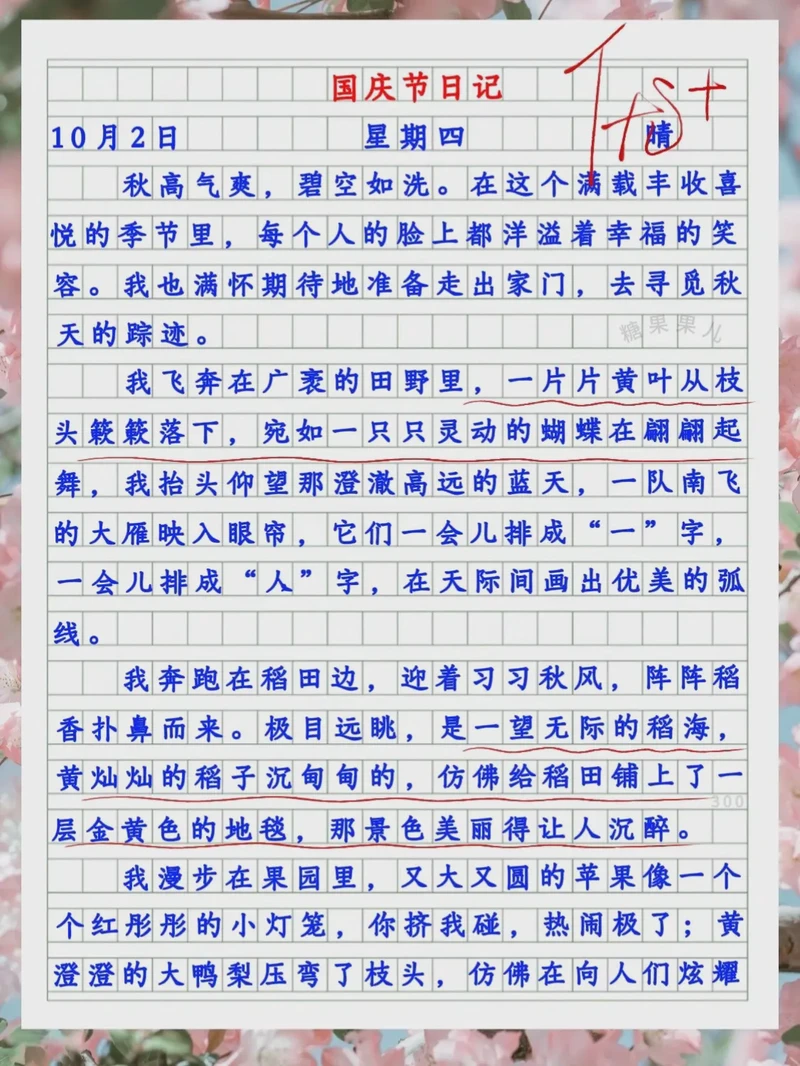 国庆节日记
10月2日 星期四 晴
秋高气爽，碧空如洗。在这个满载丰收喜
悦的季节里，每个人的脸上都洋溢着幸福的笑
容。我也满怀期待地准备走出家门，去寻觅秋
天的踪迹。
糖果果儿
我飞奔在广袤的田野里，一片片黄叶从枝
头簌簌落下，宛如一只只灵动的蝴蝶在翩翩起
舞，我抬头仰望那澄澈高远的蓝天，一队南飞
的大雁映入眼帘，它们一会儿排成“一”字，
一会儿排成“人”字，在天际间画出优美的弧
线。
我奔跑在稻田边，迎着习习秋风，阵阵稻
香扑鼻而来。极目远眺，是一望无际的稻海，
黄灿灿的稻子沉甸甸的，仿佛给稻田铺上了一
300
层金黄色的地毯，那景色美丽得让人沉醉。
我漫步在果园里，又大又圆的苹果像一个
个红彤彤的小灯笼，你挤我碰，热闹极了；黄
澄澄的大鸭梨压弯了枝头，仿佛在向人们炫耀